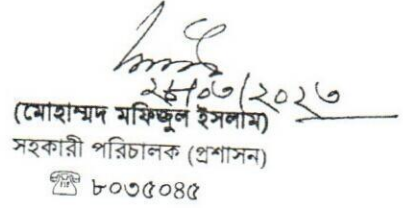 ২৮/০৩/২০২৩
(মোহাম্মদ মফিজুল ইসলাম)
সহকারী পরিচালক (প্রশাসন)
☎ ৮০৩৫০৪৫